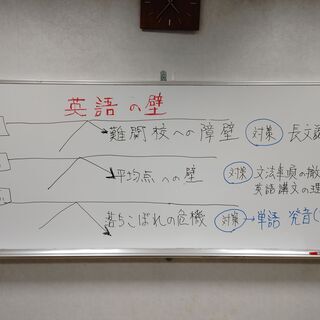 英語の壁
難関校への障壁 対策 長文
平均点への壁 対策 文法事項の徹
英語講文の理
落ちこぼれの危機 対策→単語 発音(